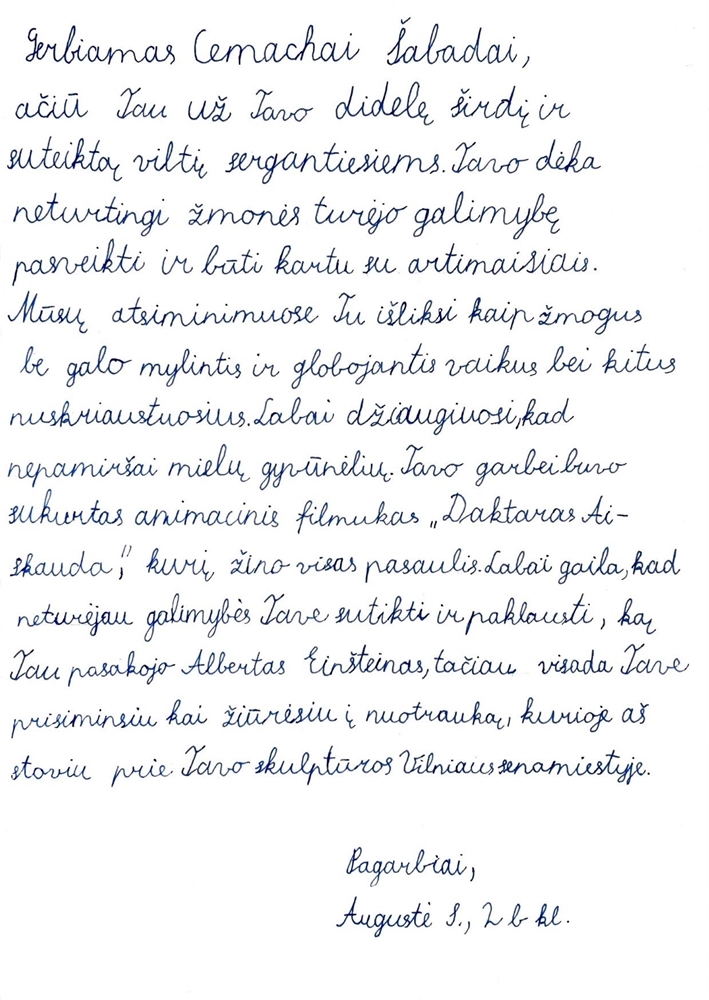 Gerbiamas Cemachai Šabadai,
ačiū Tau už Tavo didelę širdį ir
suteiktą viltį sergantiesiems. Tavo dėka
neturtingi žmonės turėjo galimybę
pasveikti ir būti kartu su artimaisiais.
Mūsų atsiminimuose Tu išliksi kaip žmogus
be galo mylintis ir globojantis vaikus bei kitus
nuskriaustuosius. Labai džiaugiuosi, kad
nepamiršai mielų gyvūnėlių. Tavo garbei buvo
sukurtas animacinis filmukas „Daktaras Ai-
skauda“, kurį žino visas pasaulis. Labai gaila, kad
neturėjau galimybės Tave sutikti ir paklausti, ką
Tau pasakojo Albertas Einšteinas, tačiau visada Tave
prisiminsiu kai žiūrėsiu į nuotrauką, kurioje aš
stoviu prie Tavo skulptūros Vilniaus senamiestyje.
Pagarbiai,
Augustė S., 2 b kl.